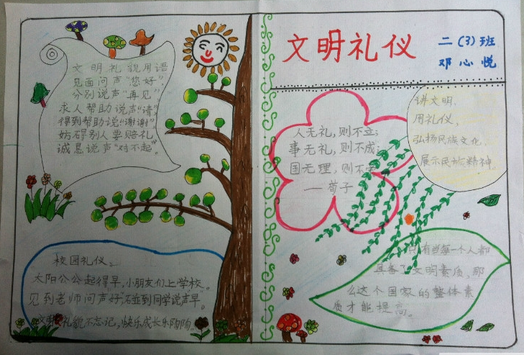 文明礼貌用语
见面问声"您好"
分别说声"再见"
求人帮助说声"请"
得到帮助说"谢谢"
妨碍别人要赔礼
诚恳说声"对不起"。
校园礼仪。
太阳公公起得早,小朋友们上学校。
见到老师问声好,见到同学说声早。
文明礼貌不忘记,快乐成长乐陶陶。
文明礼仪
二(3)班
邓心悦
人无礼,则不立;
事无礼,则不成;
国无理,则不
—荀子
讲文明,
用礼仪,
弘扬民族文化,
展示民族精神。
只有当每一个人都
具备了文明素质,那
么这个国家的整体素
质才能提高。